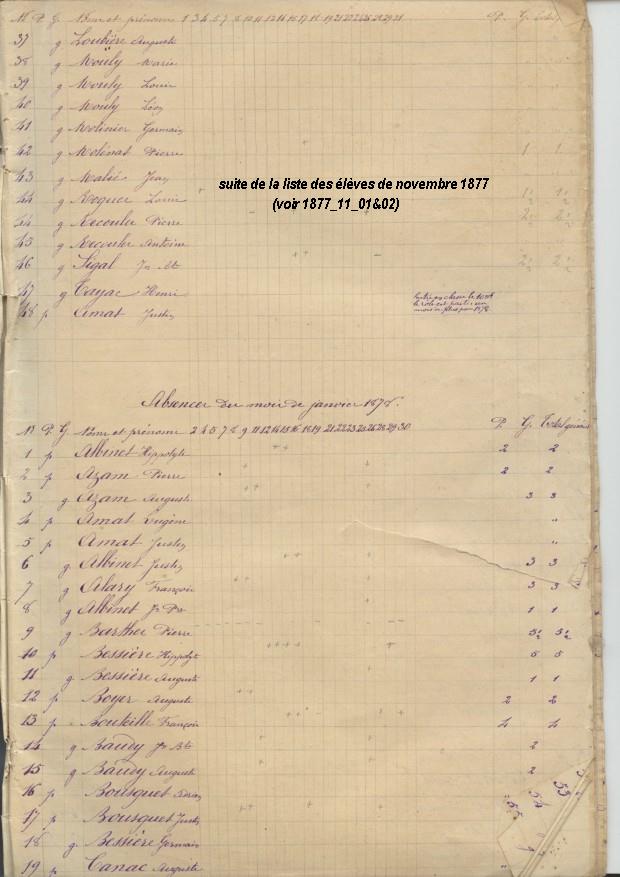 N. P. G. Nom et prénoms 1 3 4 5 7 8 10 11 12 14 15 17 18 19 21 22 24 25 28 29 31 P. G.
37 g Loubière Auguste
38 g Mouly Marie
39 g Mouly Louis
40 g Mouly Léon
41 g Molinier Germain
42 g Molinat Pierre 1 1
43 g Malié Jean
suite de la liste des élèves de novembre 1877
44 g Louis 1½ 1½
(voir 1877_11_01&02)
44 g Recoules Pierre 2½ 2½
45 g Recoules Antoine
46 g Sigal Jn Bt ++ – 2½ 2½
47 g Cayac Henri
48 p Amat Justin
Absences du mois de janvier 1878.
N P. G. Nom et prénoms 2 4 5 7 8 9 11 12 14 15 16 18 19 21 22 23 25 26 28 29 30 P. G. Total
1 p Albinet Hippolyte ++ 2 2
2 p Azam Pierre + + 2 2
3 g Azam Auguste ++ + 3 3
4 p Amat Eugène "
5 p Amat Justin "
6 g Albinet Justin ++ + 3 3
7 g Alary François ++ + 3 3
8 g Albinet Jn + 1 1
9 g Barthe Pierre 5½ 5½
10 p Bessière Hippolyte ++++ + 5 5
11 g Bessière Auguste + 1 1
12 p Boyer Auguste ++ 2 2
13 p Bouteille François ++ – – + 4 4
14 g Baudy Jn Bt + + 2
15 g Baudy Auguste + + 2
16 p Bousquet
17 p Bousquet Justin ++ +
18 g Bessière Germain
19 p Canac Auguste + "
55 54 53